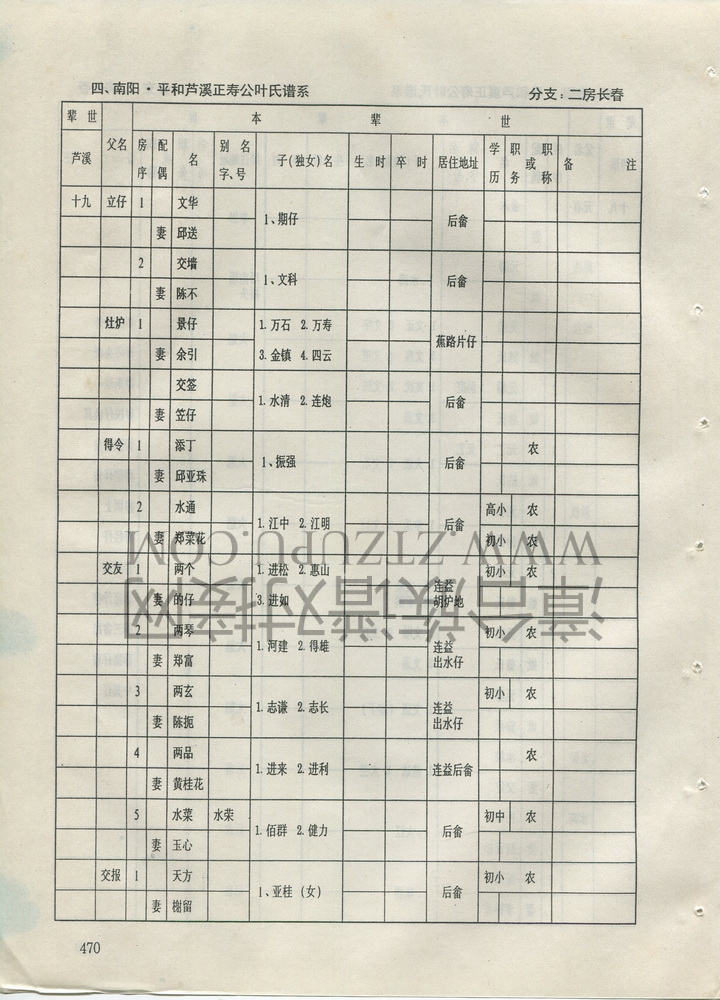 四、南阳·平和芦溪正寿公叶氏谱系 分支：二房长春
辈世 本辈世
芦溪 父名 房序 配偶 名 别名字、号 子(独女)名 生时 卒时 居住地址 学历 职务或职称 备注
十九 立仔 1 文华 1、期仔 后畲
妻 邱送
2 交墙 1、文科 后畲
妻 陈不
灶护 1 景仔 1.万石 2.万寿 蕉路片仔
妻 余引 3.金镇 4.四云
交签 1.水清 2.连炮 后畲
妻 笠仔
得令 1 添丁 1、振强 后畲 农
妻 邱亚珠
2 水通 1.江中 2.江明 后畲 高小 农
妻 郑菜花 初小 农
交友 1 两个 1.进松 2.惠山 连益胡护地 初小 农
妻 的仔 3.进如
2 两琴 1.河建 2.得雄 连益出水仔 初小 农
妻 郑富
3 两玄 1.志谦 2.志长 连益出水仔 初小 农
妻 陈扼
4 两品 1.进来 2.进利 连益后畲 农
妻 黄桂花
5 水菜 水荣 1.佰群 2.健力 后畲 初中 农
妻 玉心
交报 1 天方 1、亚桂（女） 后畲 初小 农
妻 榭留
470
漳台族谱对接网
WWW.ZTZUPU.COM